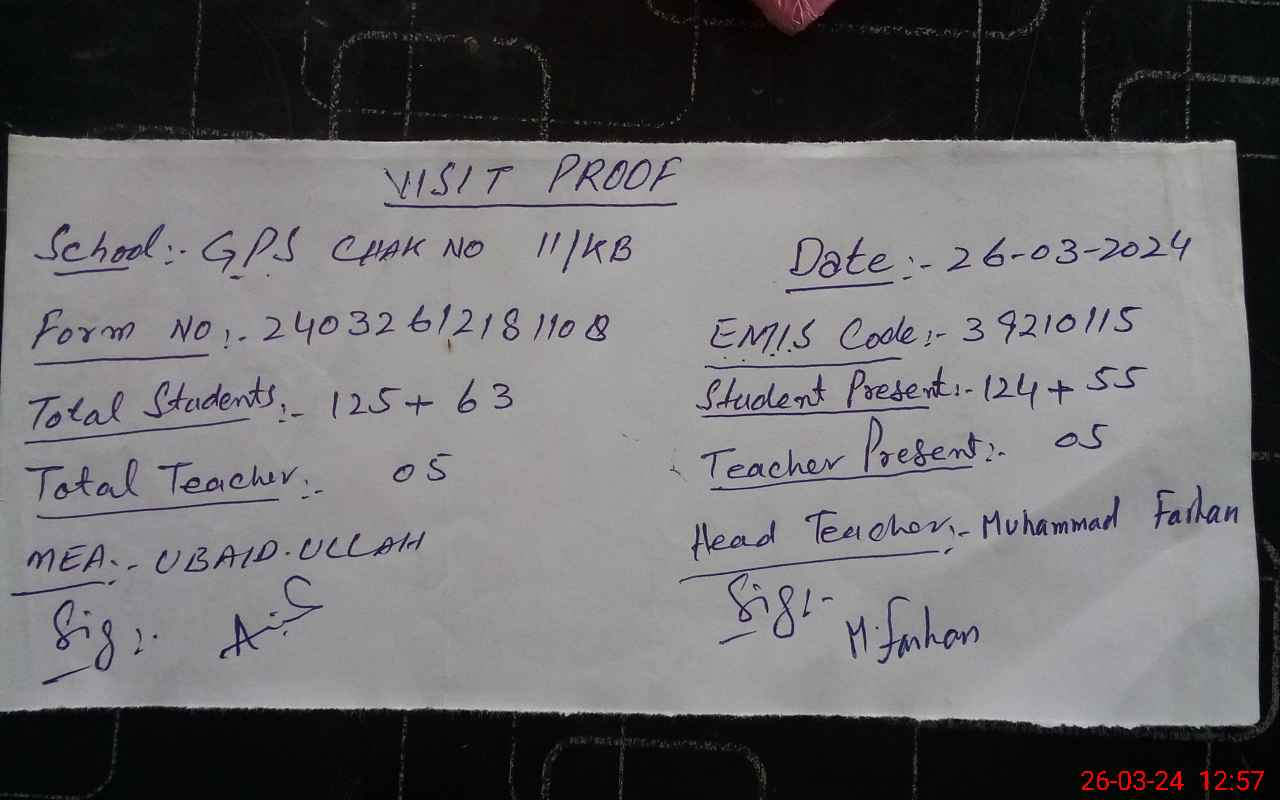 VISIT PROOF
School:- GPS CHAK NO 11/KB
Date:- 26-03-2024
Form No:- 24032612181108
EMIS Code:- 39210115
Total Students:- 125 + 63
Student Present:- 124 + 55
Total Teacher:- 05
Teacher Present:- 05
MEA:- UBAID.ULLAH
Head Teacher:- Muhammad Farhan
Sig:-
Sig:- M.farhan
26-03-24 12:57